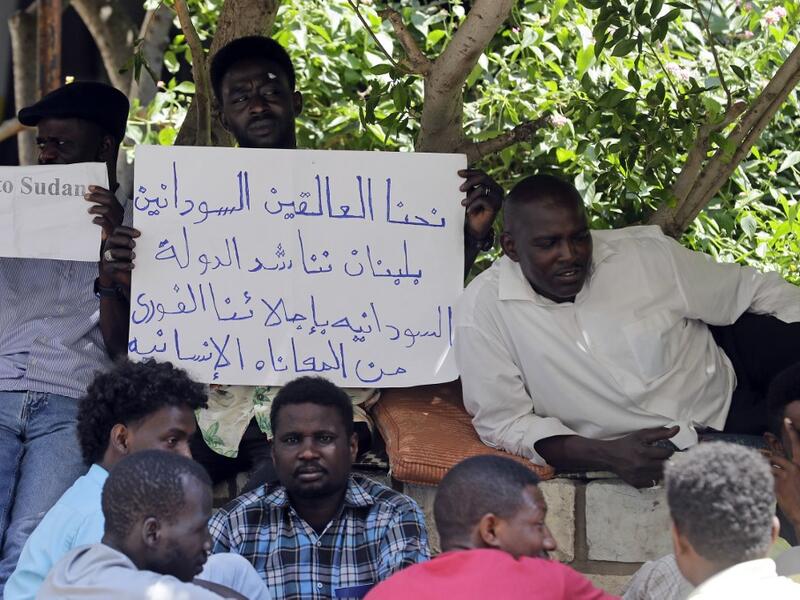 to Sudan
نحنا العالقين السودانين
بلبنان نناشد الدولة
السودانيه بإجلائنا الفوري
من المعاناه الإنسانيه